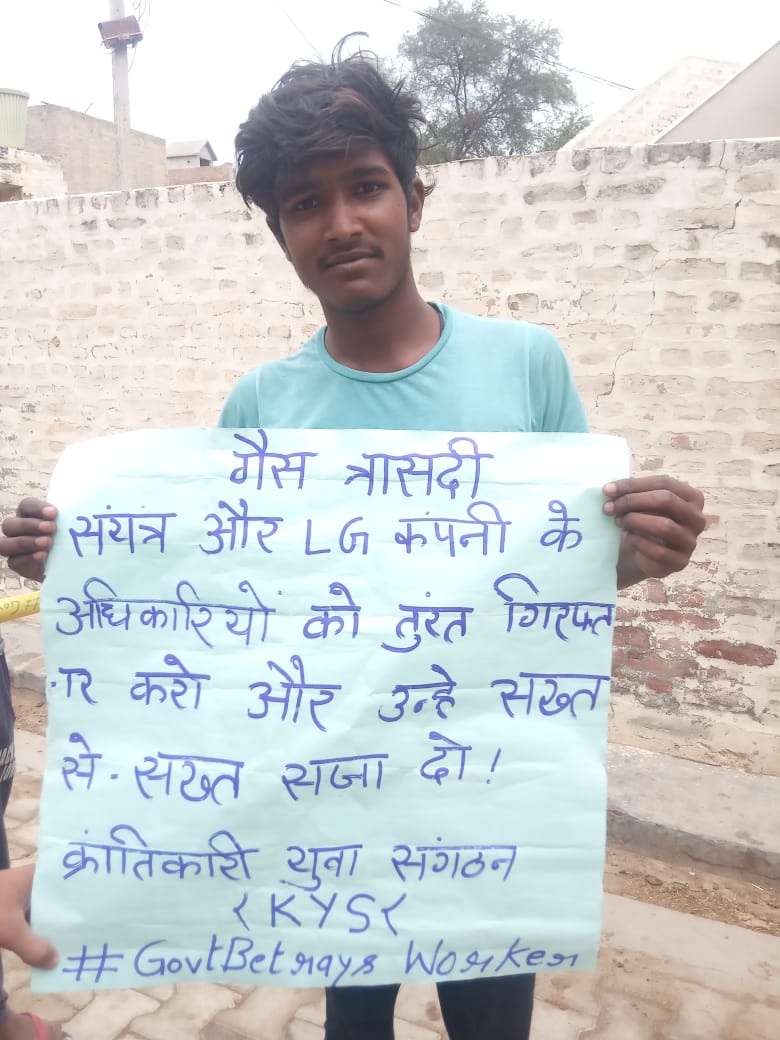 गैस त्रासदी
संयंत्र और LG कंपनी के
अधिकारियों को तुरंत गिरफ्त
-ार करो और उन्हे सख्त
से-सख्त सजा दो!
क्रांतिकारी युवा संगठन
(KYS(
#GovtBetrays Worker